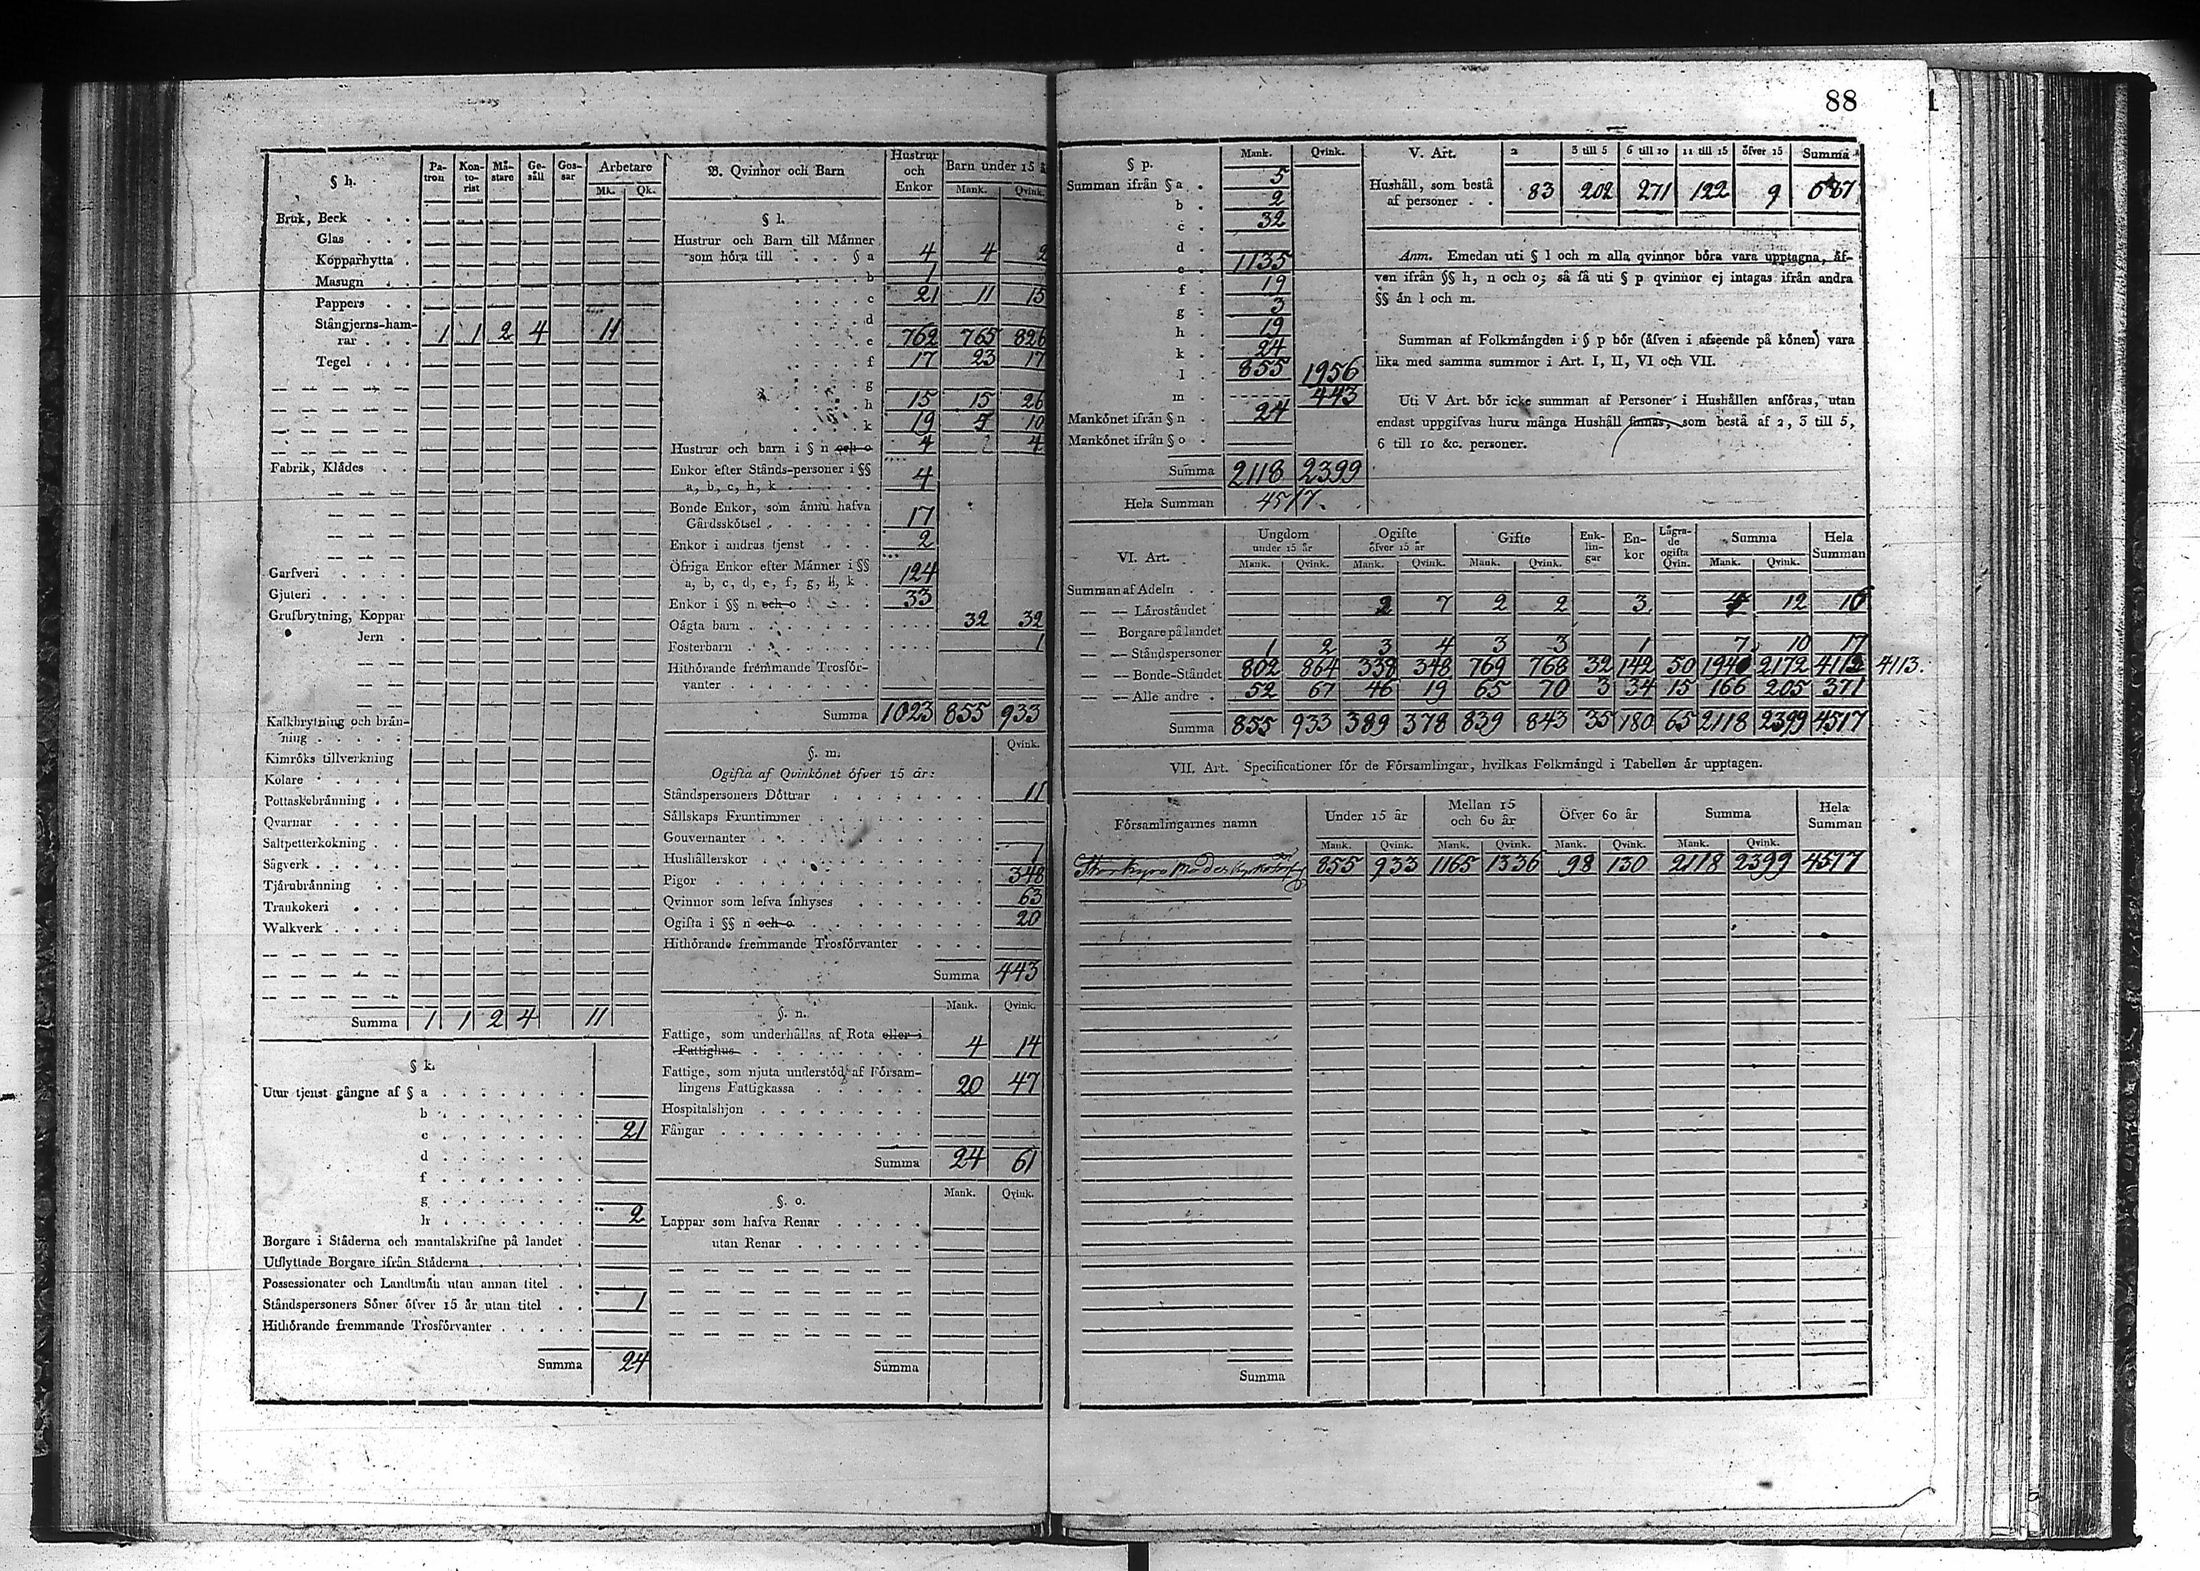 88
§ h.
Patron Kontorist Måstare Gesäll Gossar Arbetare
Mk. Qk.
Bruk, Beck . . .
Glas . . .
Kopparhytta .
Masugn . .
Pappers . .
Stångjerns-ham-
rar . . . 1 1 2 4 11
Tegel . . .
Fabrik, Klådes . .
Garfveri . . . .
Gjuteri . . . . .
Grufbrytning, Koppar
Jern .
Kalkbrytning och brån-
ning . . . .
Kimröks tillverkning
Kolare . . . . .
Pottaskebrånning . .
Qvarnar . . . .
Saltpetterkokning . .
Sågverk . . . . .
Tjårubrånning . .
Trankokeri . . .
Walkverk . . . .
Summa 1 1 2 4 11
§ k.
Utur tjenst gångne af § a . . . . . . . .
b . . . . . . . .
c . . . . . . . . 21
d . . . . . . . .
f . . . . . . . .
g . . . . . . . .
h . . . . . . . . 2
Borgare i Ståderna och mantalskrifne på landet .
Utflyttade Borgare ifrån Ståderna . . . . .
Possessionater och Landtmån utan annan titel . .
Ståndspersoners Söner öfver 15 år utan titel . . 1
Hithörande fremmande Trosförvanter . . . . .
Summa 24
B. Qvinnor och Barn Hustrur och Enkor Barn under 15 å
Mank. Qvink.
§ l.
Hustrur och Barn till Månner
som höra till . . . § a 4 4 2
. . . . b 1
. . . . c 21 11 15
. . . . d
. . . . e 762 765 826
. . . . f 17 23 17
. . . . g
. . . . h 15 15 26
. . . . k 19 5 10
Hustrur och barn i § n och o 4 4
Enkor efter Stånds-personer i §§
a, b, c, h, k . . . . . 4
Bonde Enkor, som ånnu hafva
Gårdsskötsel . . . . . . 17
Enkor i andras tjenst . . . 2
Öfriga Enkor efter Månner i §§
a, b, c, d, e, f, g, h, k . 124
Enkor i §§ n och o . . . . 33
Oågta barn . . . . . . . 32 32
Fosterbarn . . . . . . . 1
Hithörande fremmande Trosför-
vanter . . . . . . . .
Summa 1023 855 933
§. m. Qvink.
Ogifta af Qvinkönet öfver 15 år:
Ståndspersoners Döttrar . . . . . . . 11
Sållskaps Fruntimmer . . . . . . . .
Gouvernanter . . . . . . . . . .
Hushållerskor . . . . . . . . . . 1
Pigor . . . . . . . . . . . . 348
Qvinnor som lefva inhyses . . . . . . . 63
Ogifta i §§ n och o . . . . . . . . . 20
Hithörande fremmande Trosförvanter . . . .
Summa 443
§. n. Mank. Qvink.
Fattige, som underhållas af Rota eller i
Fattighus . . . . . . . . . 4 14
Fattige, som njuta understöd af Församlin-
gens Fattigkassa . . . . . 20 47
Hospitalshjon . . . . . . . .
Fångar . . . . . . . . . .
Summa 24 61
§. o. Mank. Qvink.
Lappar som hafva Renar . . . . .
utan Renar . . . . . .
Summa
§ p. Mank. Qvink.
Summan ifrån § a . 5
b . 2
c . 32
d .
e . 1135
f . 19
g . 3
h . 19
k . 24
l . 855 1956
m . 443
Mankönet ifrån § n . 24
Mankönet ifrån § o .
Summa 2118 2399
Hela Summan 4517.
V. Art. 2 3 till 5 6 till 10 11 till 15 öfver 15 Summa
Hushåll, som bestå
af personer . . 83 202 271 122 9 687
Anm. Emedan uti § l och m alla qvinnor böra vara upptagna, åf-
ven ifrån §§ h, n och o; så få uti § p qvinnor ej intagas ifrån andra
§§ ån l och m.
Summan af Folkmångden i § p bör (åfven i afseende på könen) vara
lika med samma summor i Art. I, II, VI och VII.
Uti V Art. bör icke summan af Personer i Hushållen anföras, utan
endast uppgifvas huru många Hushåll finnas, som bestå af 2, 3 till 5,
6 till 10 &c. personer.
VI. Art. Ungdom under 15 år Ogifte öfver 15 år Gifte Enklingar Enkor Lågrade ogifta Qvin. Summa Hela Summan
Mank. Qvink. Mank. Qvink. Mank. Qvink. Mank. Qvink.
Summan af Adeln . .
— — Låroståndet 2 7 2 2 3 4 12 16
— Borgare på landet
— — Ståndspersoner 1 2 3 4 3 3 1 7 10 17
— — Bonde-Ståndet 802 864 338 348 769 768 32 142 50 1941 2172 4113 4113.
— — Alle andre . 52 67 46 19 65 70 3 34 15 166 205 371
Summa 855 933 389 378 839 843 35 180 65 2118 2399 4517
VII. Art. Specificationer för de Församlingar, hvilkas Folkmångd i Tabellen år upptagen.
Församlingarnes namn Under 15 år Mellan 15 och 60 år Öfver 60 år Summa Hela Summan
Mank. Qvink. Mank. Qvink. Mank. Qvink. Mank. Qvink.
Storkyro Moder 855 933 1165 1336 98 130 2118 2399 4517
Summa